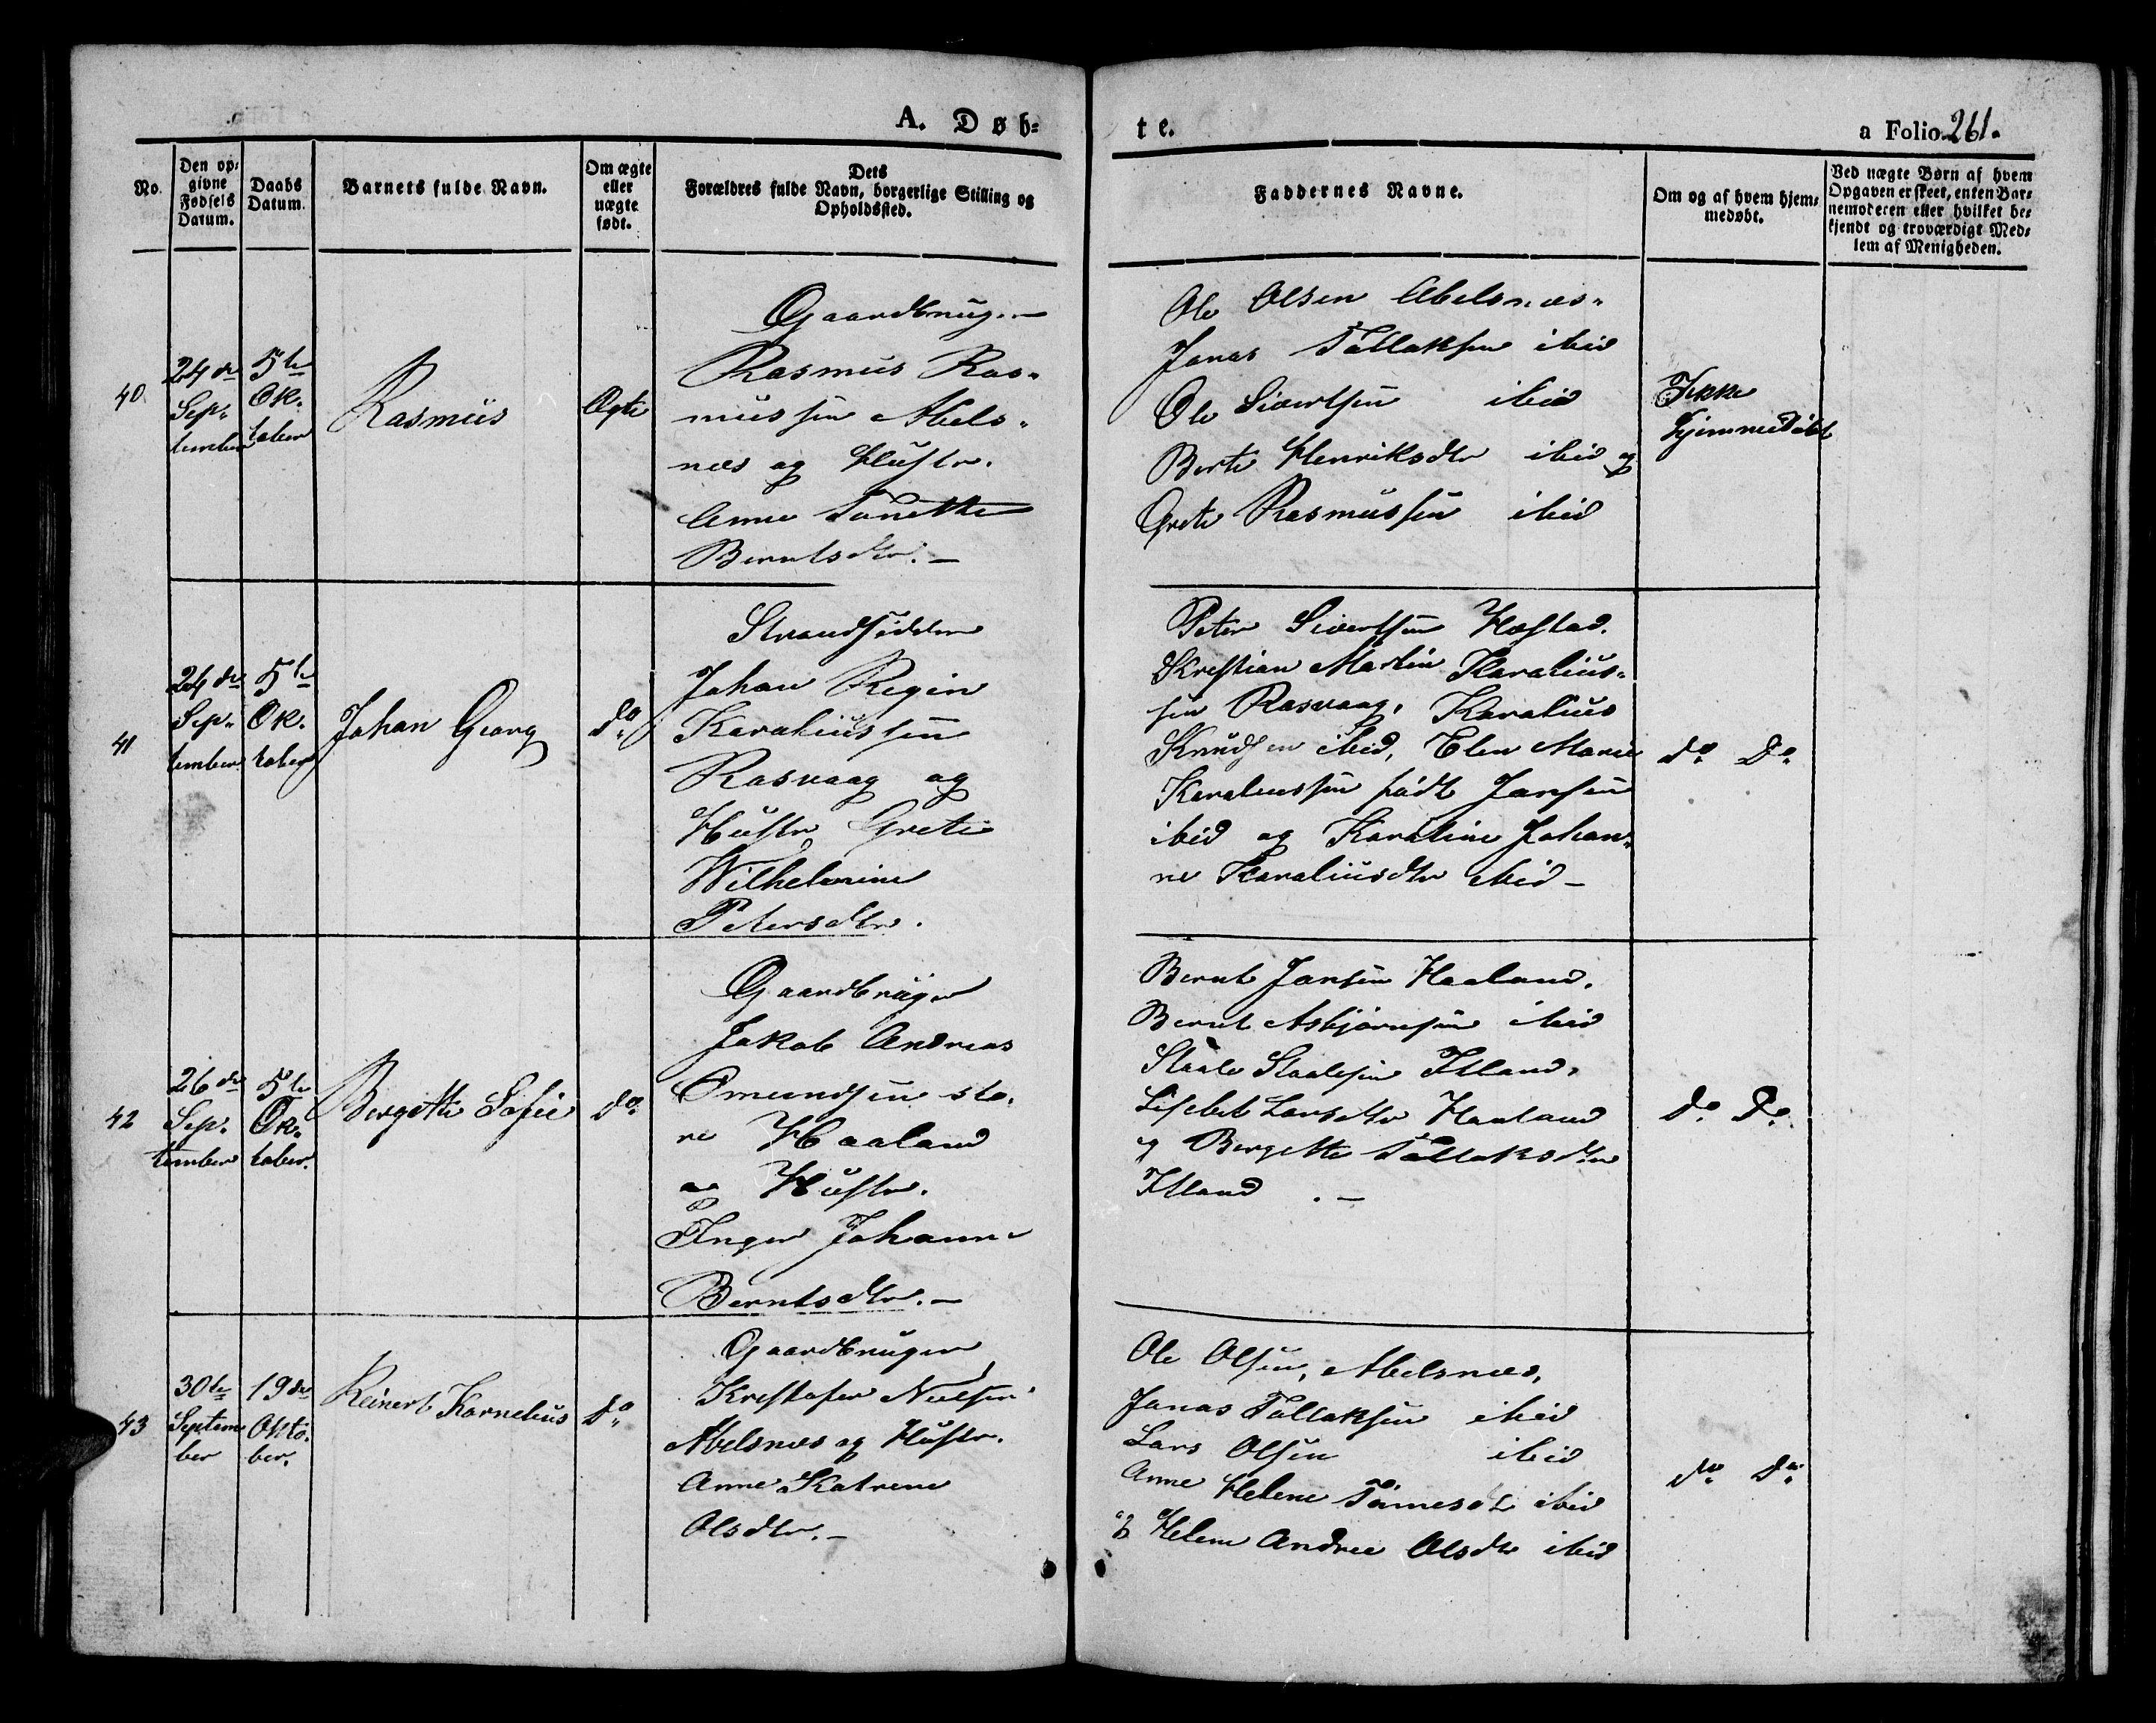 A. Døb-
te.
a Folio 261.
No.
Den op-
givne
Fødsels
Datum.
Daabs
Datum.
Barnets fulde Navn.
Om ægte
eller
uægte
født.
Dets
Forældres fulde Navn, borgerlige Stilling og
Opholdssted.
Faddernes Navne.
Om og af hvem hjem-
medøbt.
Ved uægte Børn af hvem
Opgaven er skeet, enten Bar-
nemoderen eller hvilket be-
kjendt og troværdigt Med-
lem af Menigheden.
40.
24de
Sep-
tember
5te
Ok-
tober
Rasmus
Ægte
Gaardbruger
Rasmus Ras-
mussen Abels-
næs og Hustr.
Anne Tonette
Berntsdtr.-
Ole Olsen Abelsnæs.
Jonas Tollaksen ibid
Ole Sivertsen ibid
Berte Henriksdtr ibid og
Grete Rasmussen ibid
Ikke
hjemmedöbt
41
24de
Sep-
tember
5te
Ok-
tober
Johan Georg
do
Strandsidder
Johan Regin
Karaliussen
Rasvaag og
Hustr. Grete
Wilhelmine
Petersdtr.
Peter Sivertsen Hæstad.
Krestian Martin Karalius-
sen Rasvaag, Karalius
Knudsen ibid, Elen Marie
Karaliussen födt Jansen
ibid og Karaline Johan-
ne Karaliusdtr ibid-
do Do
42
26de
Sep-
tember
5te
Ok-
tober.
Bergette Sofie
do
Gaardbruger
Jakob Andreas
Omundsen sto-
re Haaland
og Hustr.
Inger Johanne
Berntsdtr.-
Bernt Jansen Haaland.
Bernt Asbjörnsen ibid
Staale Staalesen Itland,
Lisebet Larsdtr Haaland
og Bergette Tollaksdtr
Itland .-
do Do
43
30te
Septem
ber
19de
Okto-
ber.
Reinert Kornelius
do
Gaardbruger
Krestofer Nielsen
Abelsnæs og Hustr.
Anne Katrene
Olsdtr.-
Ole Olsen, Abelsnæs,
Jonas Tollaksen ibid
Lars Olsen ibid
Anne Helene Tönnesdt ibid
og Helene Andrea Olsdtr ibid
do do